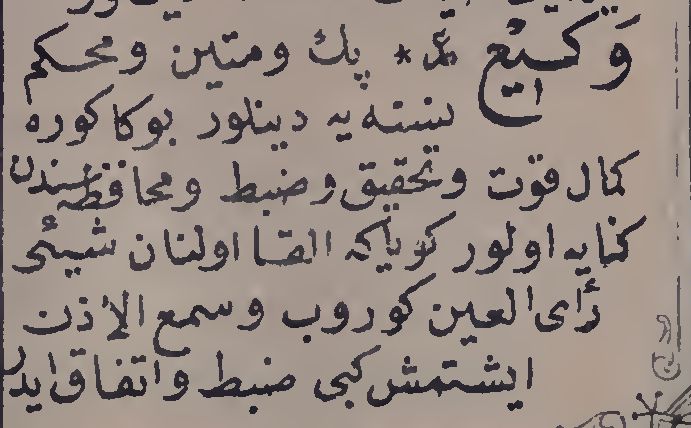 وَكيْع عر * پك ومتين ومحكم
نسنه‌يه دينلور بوكا كوره
كمال قوّت وتحقيق وضبط ومحافظه‌سندن
كنايه اولور كوياكه القا اولنان شيئى
رأى العين كوروب وسمع الاذن
ايشتمش كبى ضبط واتفاق ايدر